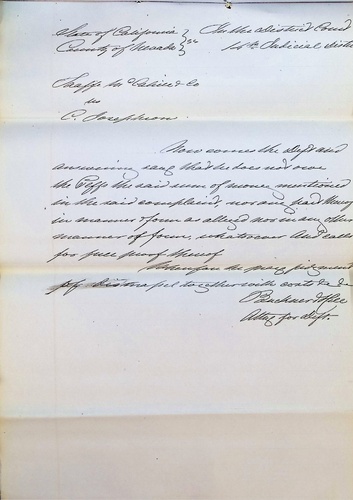 State of California } ss In the District Court
County of Nevada 14th Judicial District
& Co
vs
C. Josephson.
Now comes the Deft and
answering says that he does not owe
the Plffs the said sum of money mentioned
in the said complaint, nor any part thereof
in manner & form as alleged nor in any other
manner or form, whatever And calls
for full proof thereof
Wherefore he prays judgment
of dismissal together with costs &c &c
Buckner & Hill
Attys for Deft.